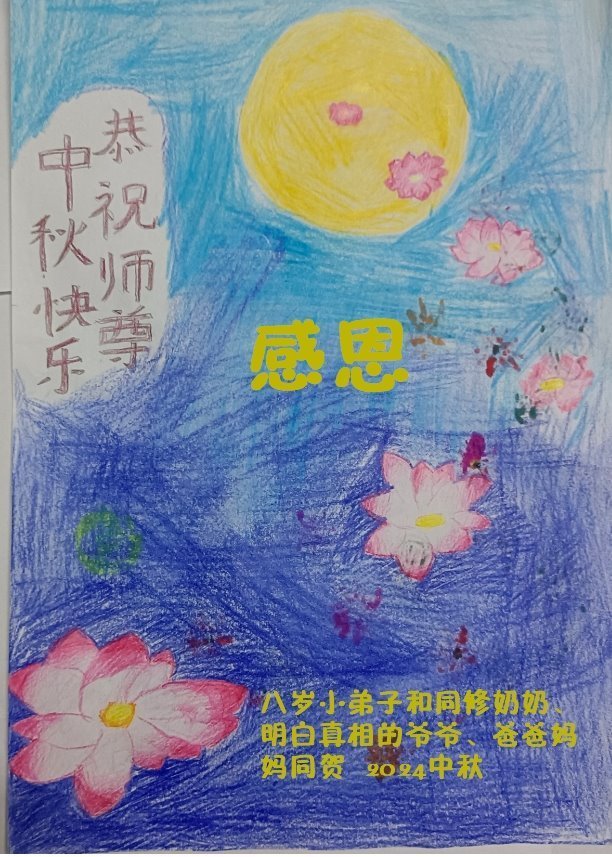 恭祝师尊
中秋快乐
感恩
八岁小弟子和同修奶奶、
明白真相的爷爷、爸爸妈
妈同贺 2024中秋